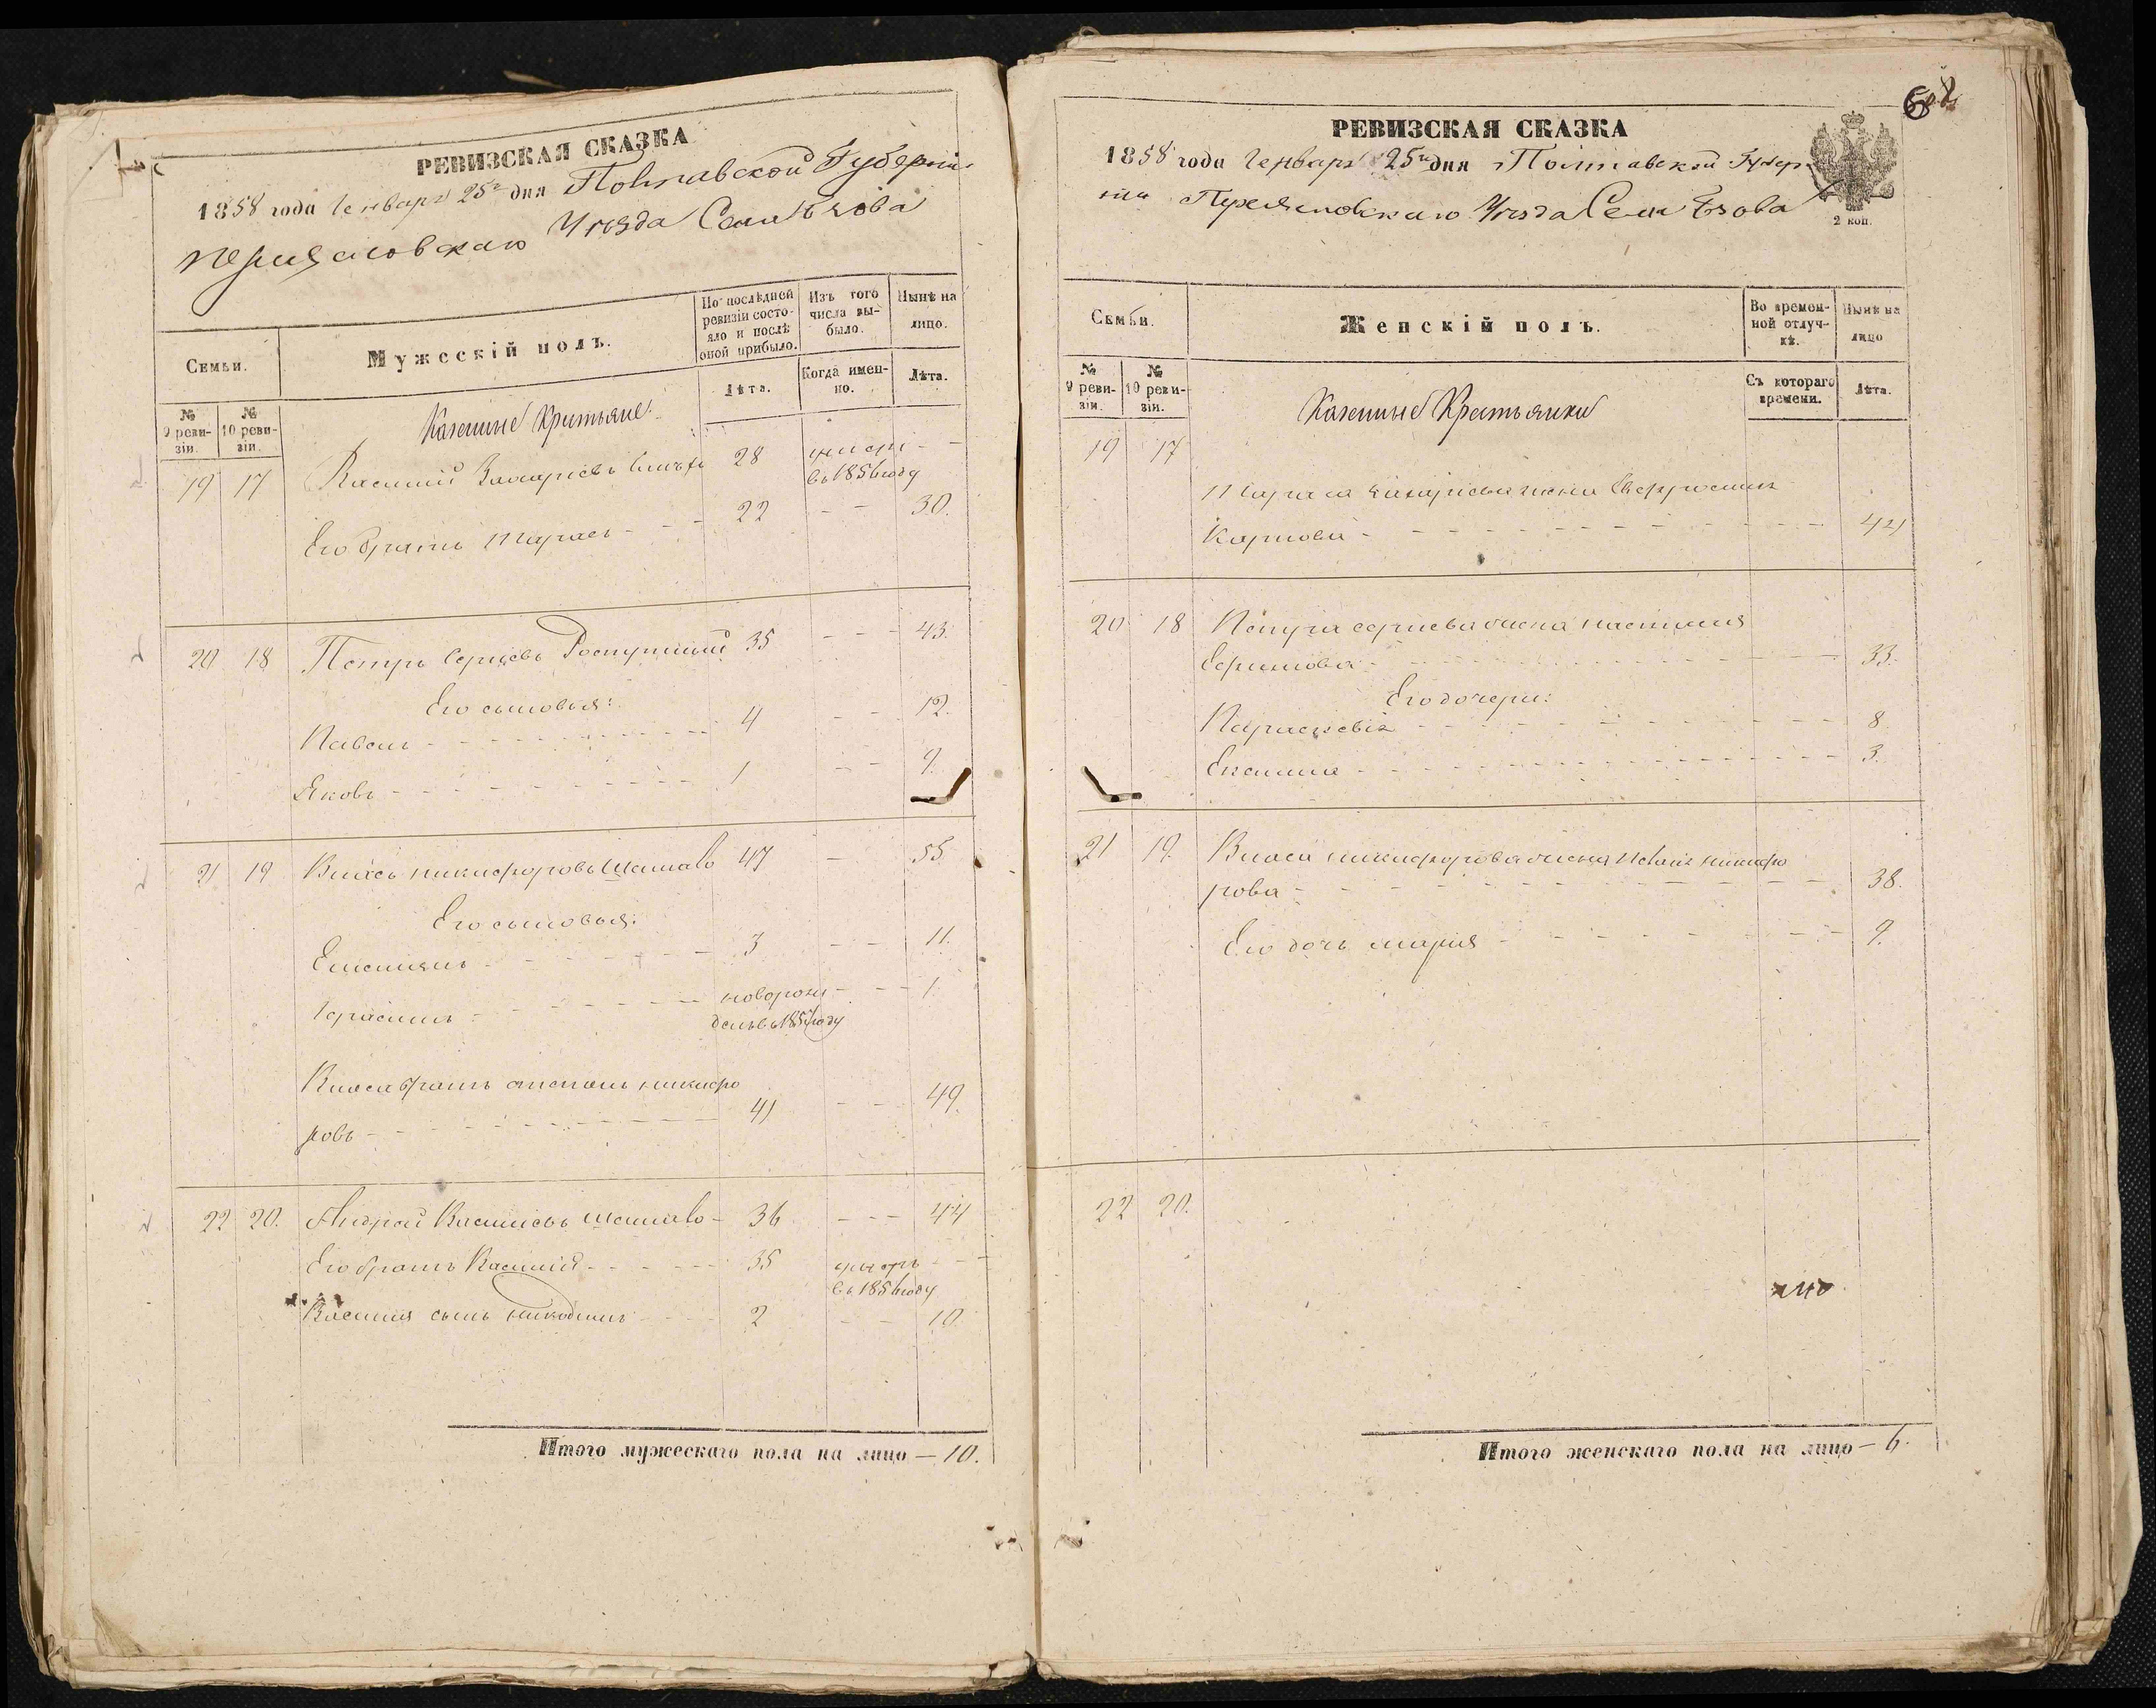 РЕВИЗСКАЯ СКАЗКА
1858 года Генваря 25го дня Полтавской Губерніи
Переяславскаго Уѣзда Села Ѣзова
Семьи.
Мужескій полъ.
По послѣдней ревизіи состояло и послѣ оной прибыло.
Изъ того числа выбыло.
Нынѣ на лицо.
№ 9 ревизіи.
№ 10 ревизіи.
Лѣта.
Когда именно.
Лѣта.
Казенные Крестьяне.
19 17 Василий Захаріевъ 28
въ 1856 году
Его братъ Тарасъ - - - 22 - - 30.
20 18 Петръ Сергѣевъ 35 - - - 43.
Его сыновья:
Павелъ - - - 4 - - 12.
Яковъ - - - 1 - - 9.
21 19 Власъ никифоровъ 47 - 55.
Его сыновья:
Емельянъ - - - 3 - - 11.
Герасимъ - - - новорож - - 1.
денъ въ 1857 году
Власа братъ степанъ никифо
ровъ - - - 41 - - 49.
22 20. Андрей 36 - - - 44
Его братъ Василій - - - 35 умеръ - -
въ 1856 году
Василия сынъ никодимъ - - - 2 - - 10.
Итого мужескаго пола на лицо — 10.
РЕВИЗСКАЯ СКАЗКА
1858 года Генваря 25го дня Полтавской Губер
ніи Переясловскаго Уѣзда Села Ѣзова
2 коп.
Семьи.
Женскій полъ.
Во временной отлучкѣ.
Нынѣ на лицо
№ 9 ревизіи.
№ 10 ревизіи.
Съ котораго времени.
Лѣта.
Казенные Крестьянки
19 17
Тараса Захаріева жена Евфросинія
Карпова - - - 42
20 18 Петра Сергѣева жена настасия
Ефимова - - - 33.
Его дочери:
Параскевія - - - 8
- - - 3.
21 19. Власа никифорова жена никифо
рова - - - 38.
Его дочь мария - - - 9.
22 20.
Итого женскаго пола на лицо — 6.